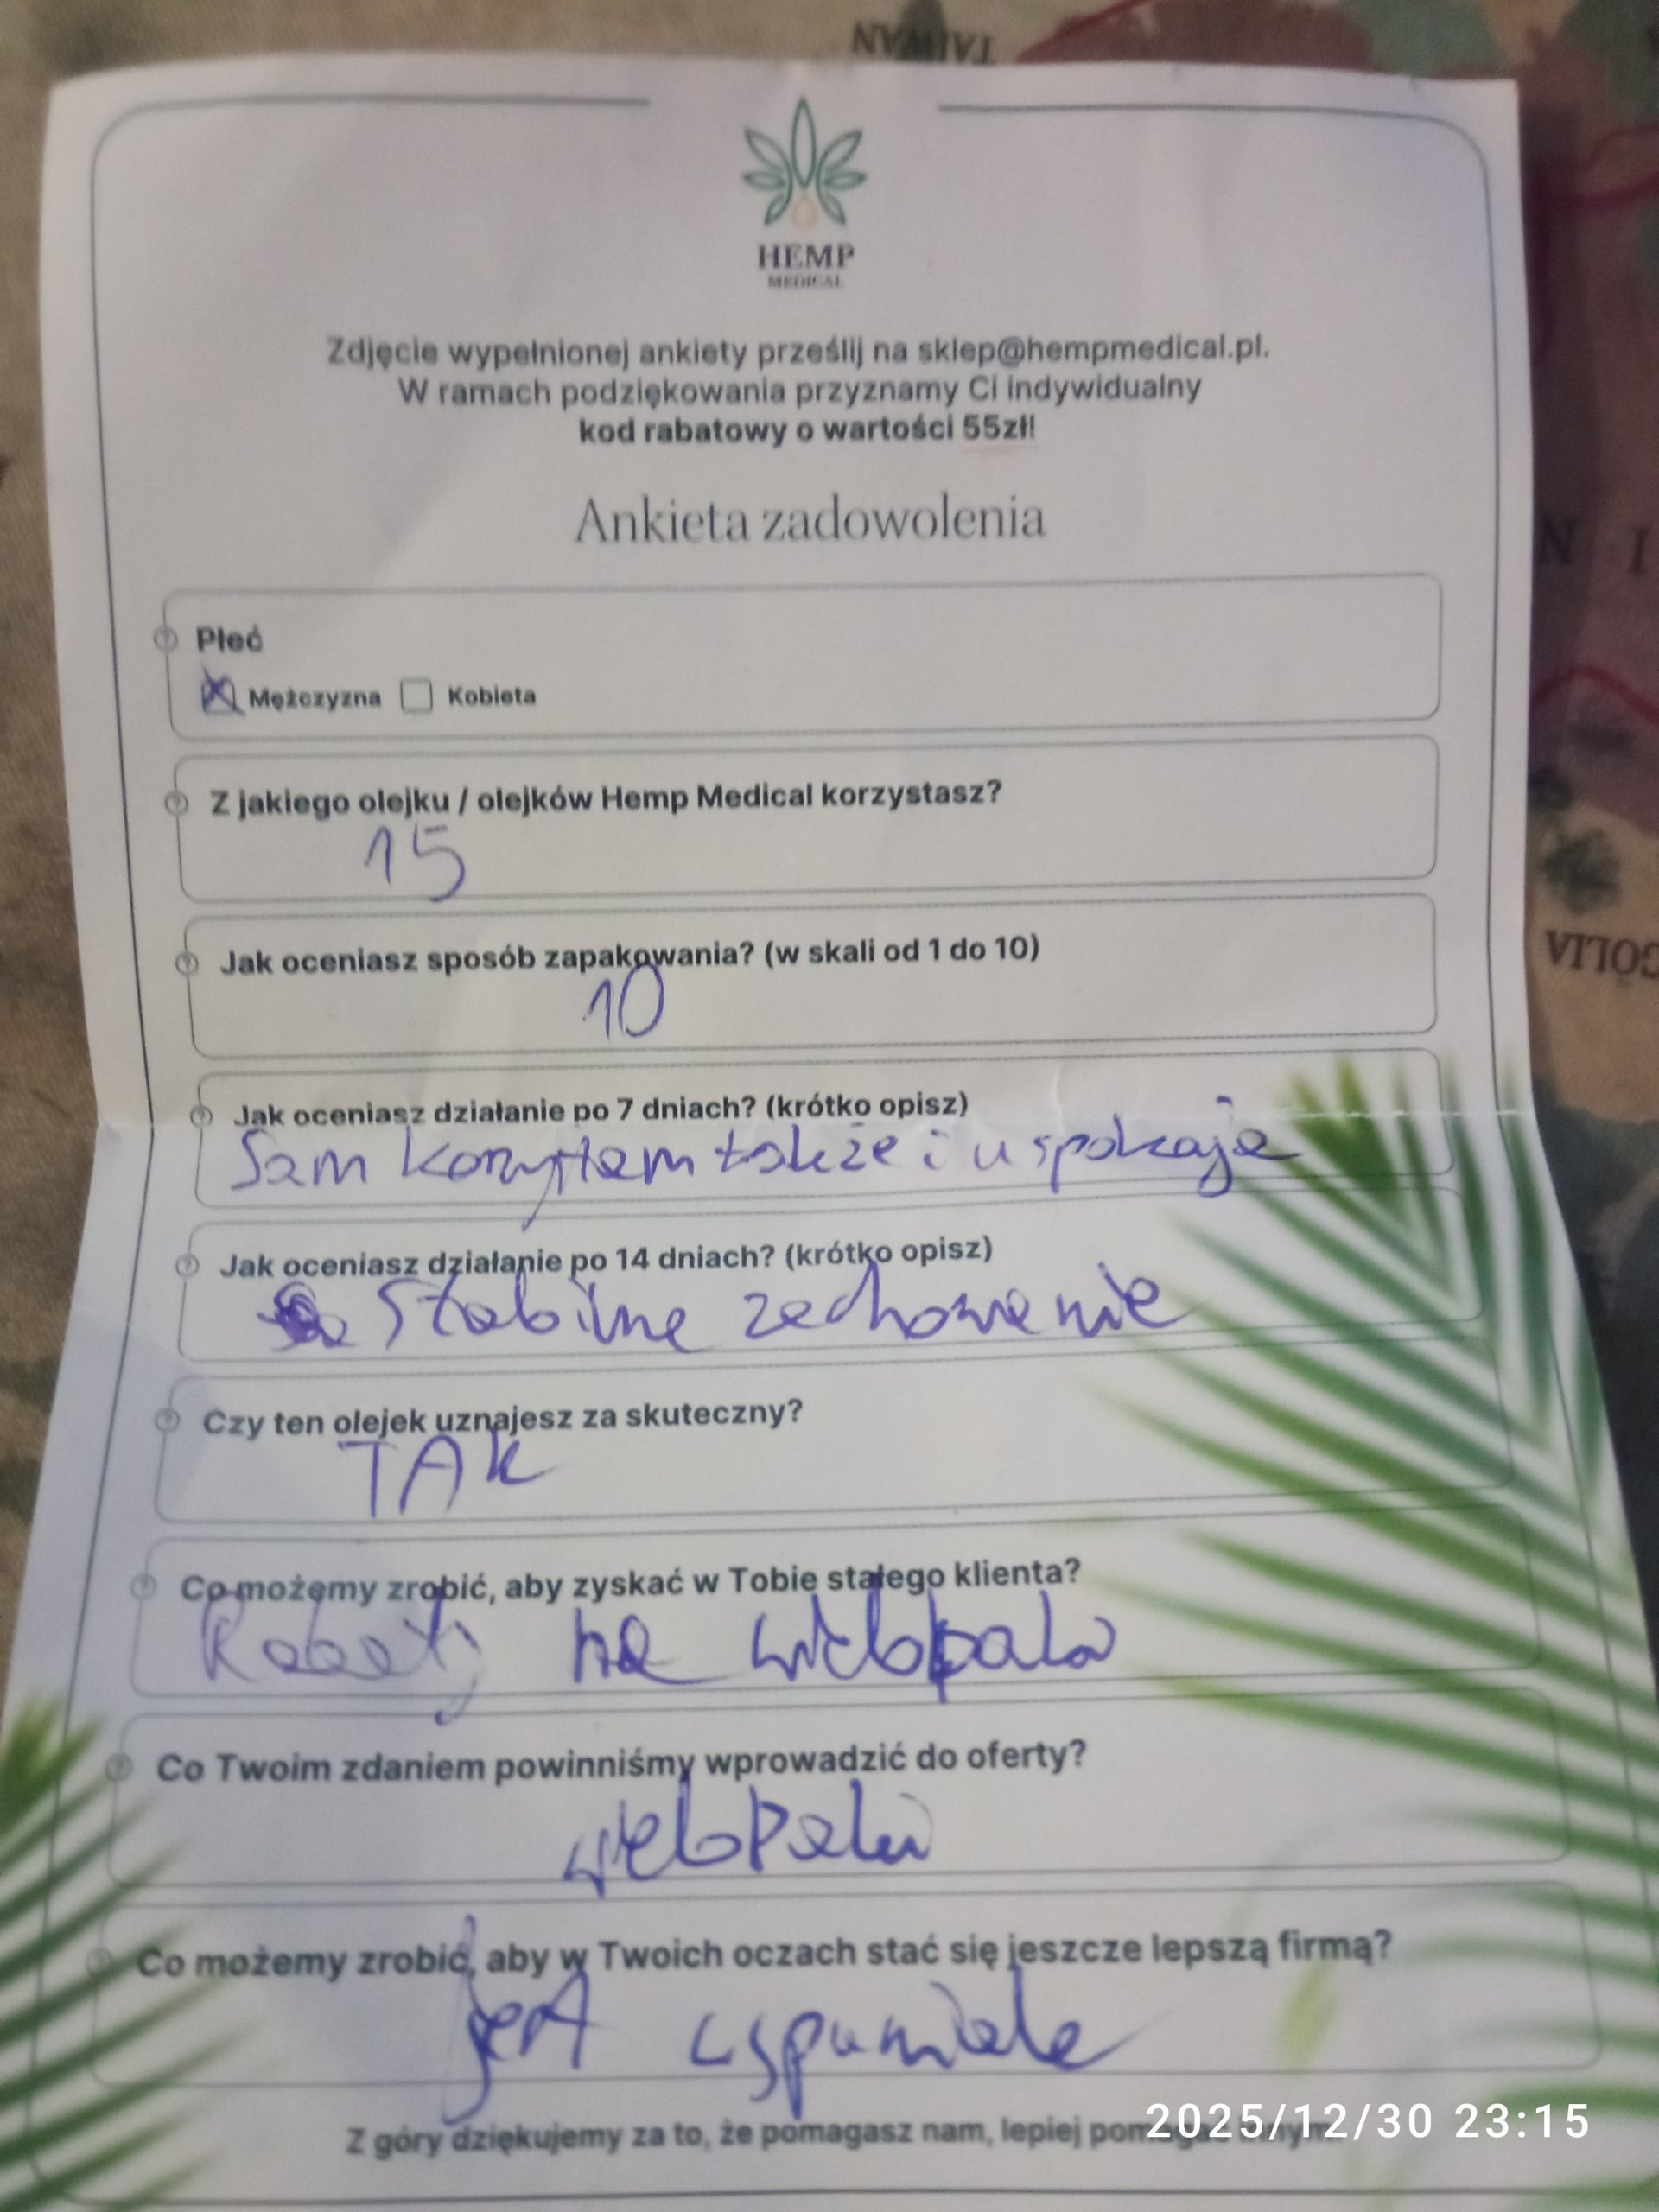 TAIWAN
HEMP
MEDICAL
Zdjęcie wypełnionej ankiety prześlij na sklep@hempmedical.pl.
W ramach podziękowania przyznamy Ci indywidualny
kod rabatowy o wartości 55zł!
Ankieta zadowolenia
Płeć
Mężczyzna Kobieta
Z jakiego olejku / olejków Hemp Medical korzystasz?
15
Jak oceniasz sposób zapakowania? (w skali od 1 do 10)
10
Jak oceniasz działanie po 7 dniach? (krótko opisz)
Sam korzystam także i uspokaja
Jak oceniasz działanie po 14 dniach? (krótko opisz)
Stabilne zachowanie
Czy ten olejek uznajesz za skuteczny?
TAK
Co możemy zrobić, aby zyskać w Tobie stałego klienta?
Rabaty na
Co Twoim zdaniem powinniśmy wprowadzić do oferty?
Co możemy zrobić, aby w Twoich oczach stać się jeszcze lepszą firmą?
jest wspaniale
Z góry dziękujemy za to, że pomagasz nam, lepiej
2025/12/30 23:15